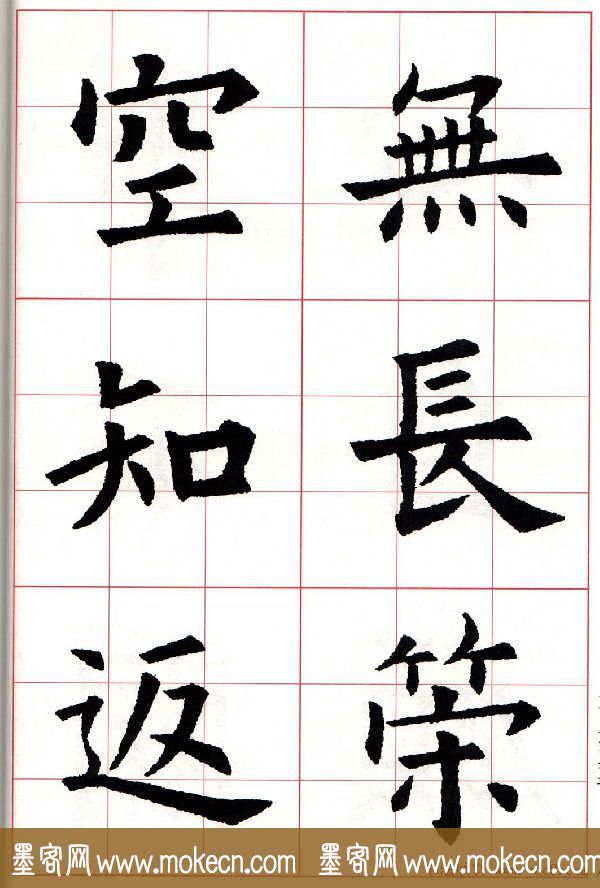 無長策
空知返
墨客网 www.mokecn.com 墨客网 www.mokecn.com